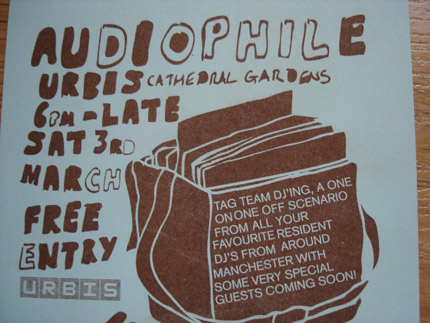 AUDIOPHILE
URBIS CATHEDRAL GARDENS
6PM - LATE
SAT 3RD
MARCH
FREE
ENTRY
URBIS
TAG TEAM DJ'ING, A ONE
ON ONE OFF SCENARIO
FROM ALL YOUR
FAVOURITE RESIDENT
DJ'S FROM AROUND
MANCHESTER WITH
SOME VERY SPECIAL
GUESTS COMING SOON!